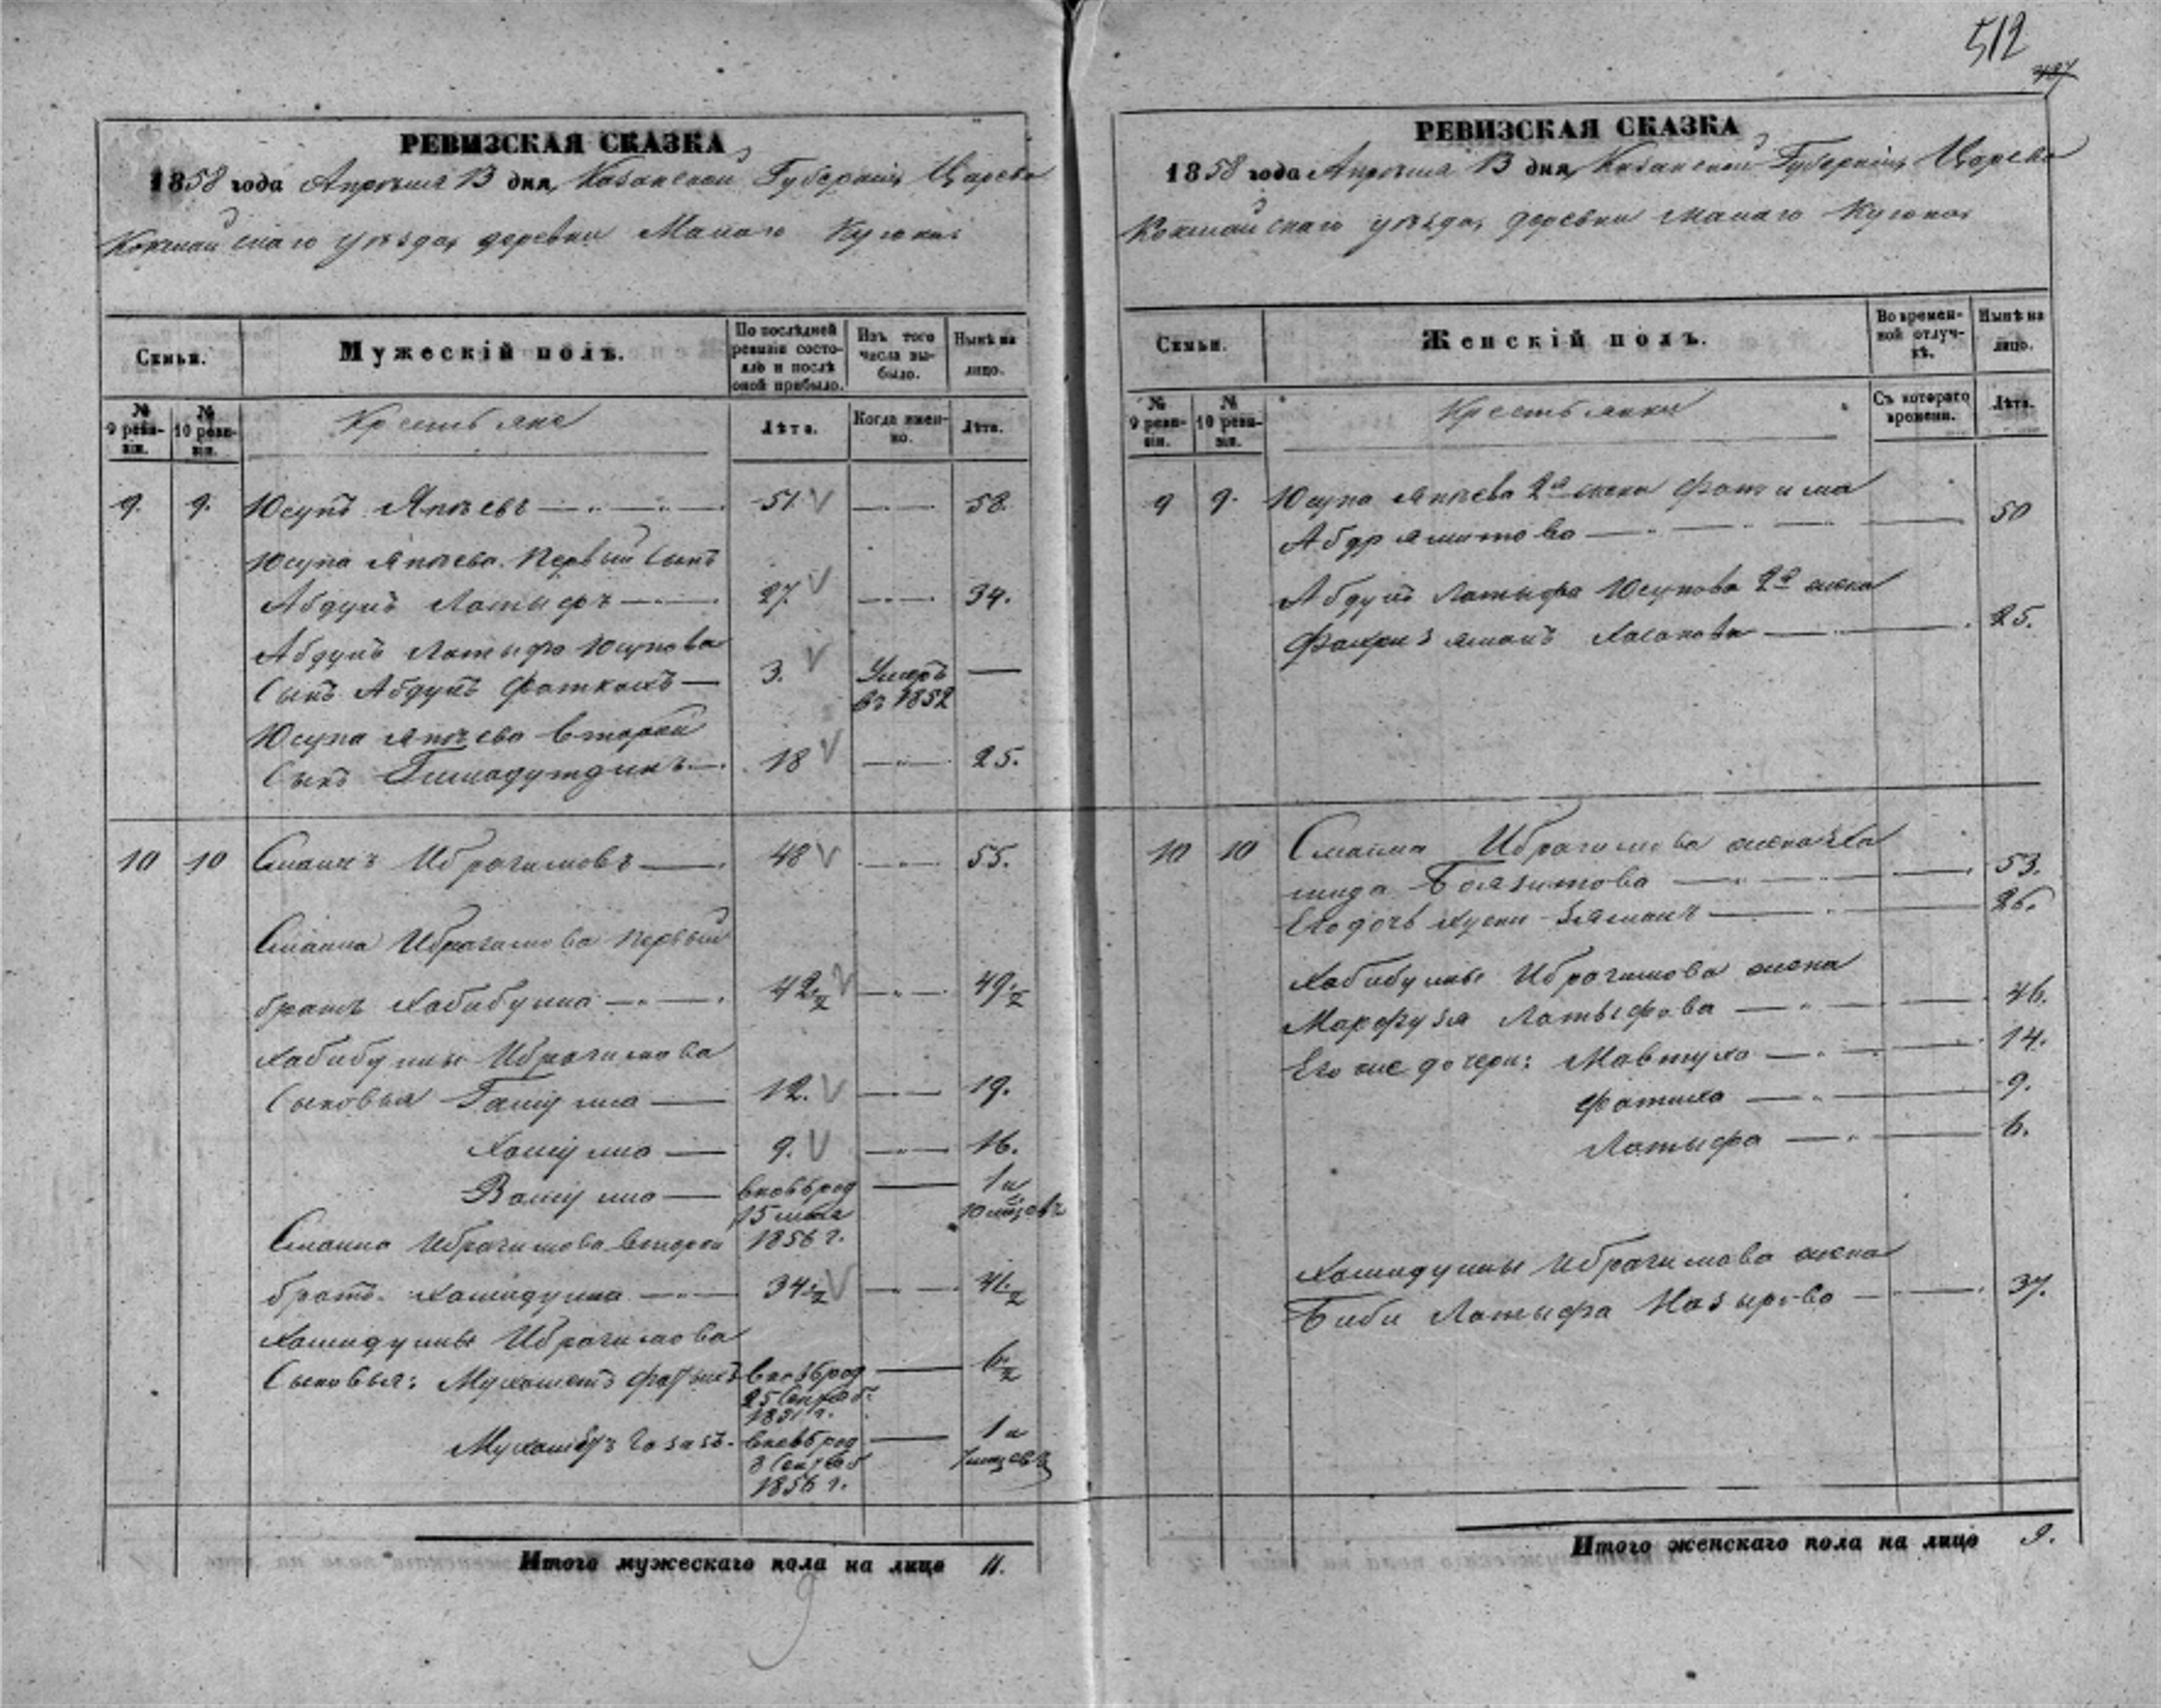 512
РЕВИЗСКАЯ СКАЗКА
1858 года Апрѣля 13 дня, Казанской Губерніи, Царево
Кокшайскаго уѣзда, деревни Малаго
Семьи.
Мужескій полъ.
По послѣдней ревизіи состояло и послѣ оной прибыло.
Изъ того числа выбыло.
Нынѣ на лицо.
№ 9 ревизіи.
№ 10 ревизіи.
Крестьяне
Лѣта.
Когда именно.
Лѣта.
9. 9. Юсупъ Япѣевъ 51 58.
Юсупа Япѣева Первый Сынъ
Абдулъ Латыфъ 27. 34.
Абдулъ Латыфа Юсупова
Сынъ Абдулъ 3. Умеръ —
въ 1852
Юсупа Япѣева второй
Сынъ 18 25.
10 10 Смаилъ Ибрагимовъ 48 55.
Смаила Ибрагимова первый
братъ Хабибулла 42 49
Хабибуллы Ибрагимова
Сыновья 12. 19.
9. 16.
вновь род 1 и
15 1856 г. 10 мѣсяцевъ
Смаила Ибрагимова второй
братъ Хамидулла 34 41
Хамидуллы Ибрагимова
Сыновья: Мухаметъ вновь род 6
25 Сентяб. 1851 г.
вновь род 1 и
3 Сентяб 1856 г. 7 мѣсяцевъ
Итого мужескаго пола на лицо 11.
РЕВИЗСКАЯ СКАЗКА
1858 года Апрѣля 13 дня, Казанской Губерніи, Царево
Кокшайскаго уѣзда, деревни Малаго
Семьи.
Женскій полъ.
Во временной отлучкѣ.
Нынѣ на лицо.
№ 9 ревизіи.
№ 10 ревизіи.
Крестьянки
Съ котораго времени.
Лѣта.
9 9. Юсупа Япѣева 2я жена Фатима
50
Абдулъ Латыфа Юсупова 2я жена
Хасанова 25.
10 10 Смаила Ибрагимова жена Ха
мида 53.
Его дочь 26.
Хабибуллы Ибрагимова жена
Марфузя Латыфова 46.
Его же дочери: 14.
9.
Латыфа 6.
Хамидуллы Ибрагимова жена
Биби Латыфа 37.
Итого женскаго пола на лицо 9.